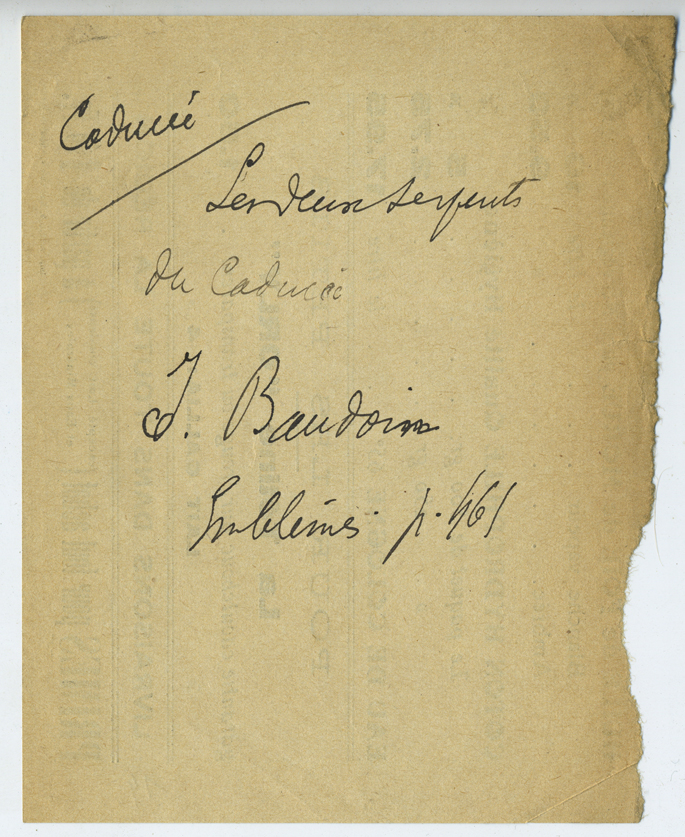 Caducée
Les deux serpents
du Caducée
J. Baudoin
Emblèmes. p. 461